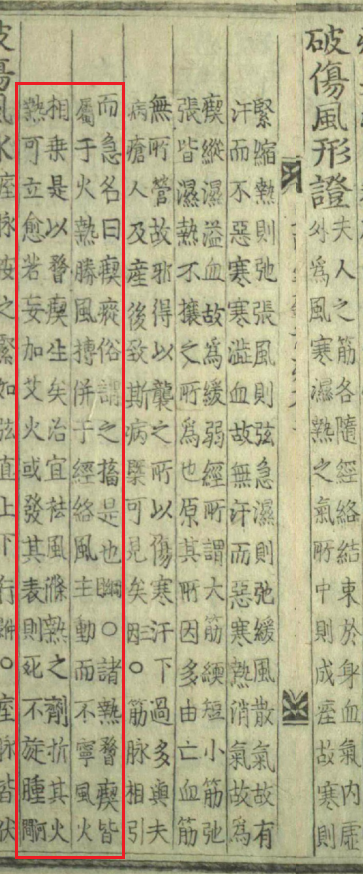 破傷風形證
夫人之筋各隨經絡結束於身血氣內虛
外爲風寒濕熱之氣所中則成痓故寒則
緊縮熱則弛張風則弦急濕則弛緩風散氣故有
汗而不惡寒寒澁血故無汗而惡寒熱消氣故爲
瘈縱濕溢血故爲緩弱經所謂大筋緛短小筋弛
張皆濕熱不攘之所爲也原其所因多由亡血筋
無所營故邪得以襲之所以傷寒汗下過多與夫
病瘡人及産後致斯病槩可見矣三因○筋脉相引
而急名曰瘈瘲俗謂之搐是也綱目○諸熱瞀瘈皆
屬于火熱勝風搏併于經絡風主動而不寧風火
相乘是以瞀瘈生矣治宜袪風滌熱之劑折其火
熱可立愈若妄加艾火或發其表則死不旋踵河間
痓脉按之緊如弦直上下行○痓脉皆伏